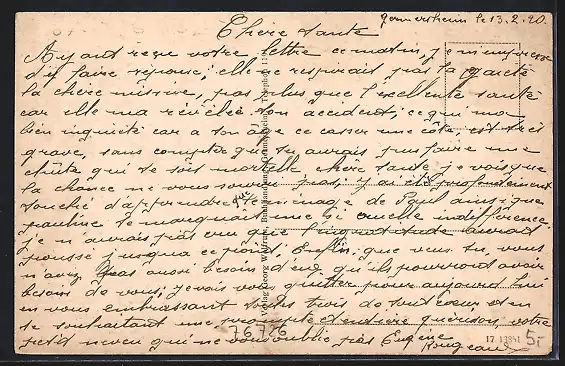 Germersheim le 13.2.20.
Chère tante
Ayant reçu votre lettre ce matin, je m'empresse
d'y faire réponse; elle ne respirait pas la gaieté
la chère missive, pas plus que l'excellente santé
car elle m'a révélée ton accident, ce qui m'a
bien inquiété car a ton âge ce casser une côte est très
grave, sans compter que tu aurais pu faire une
chûte qui te soit mortelle chère tante je vois que
la chance ne vous pas, j'ai été profondément
touché d'apprendre que le ménage de Paul ainsi que
pauline te marquait une si cruelle indifférence
je n'aurais pas cru que l'ingratitude aurait
poussé jusqu'a ce point. Enfin, que veux tu, vous
n'avez pas aussi besoin d'eux qu'ils pourront avoir
besoin de vous; je vais vous quitter pour aujourd'hui
en vous embrassant toutes trois de tout cœur et en
te souhaitant une prompte et entière guérison, votre
petit neveu qui ne vous oublie pas Eugène
Rougeaux
Verlag Georg Wilfrum,
76726
17 13841
5,-